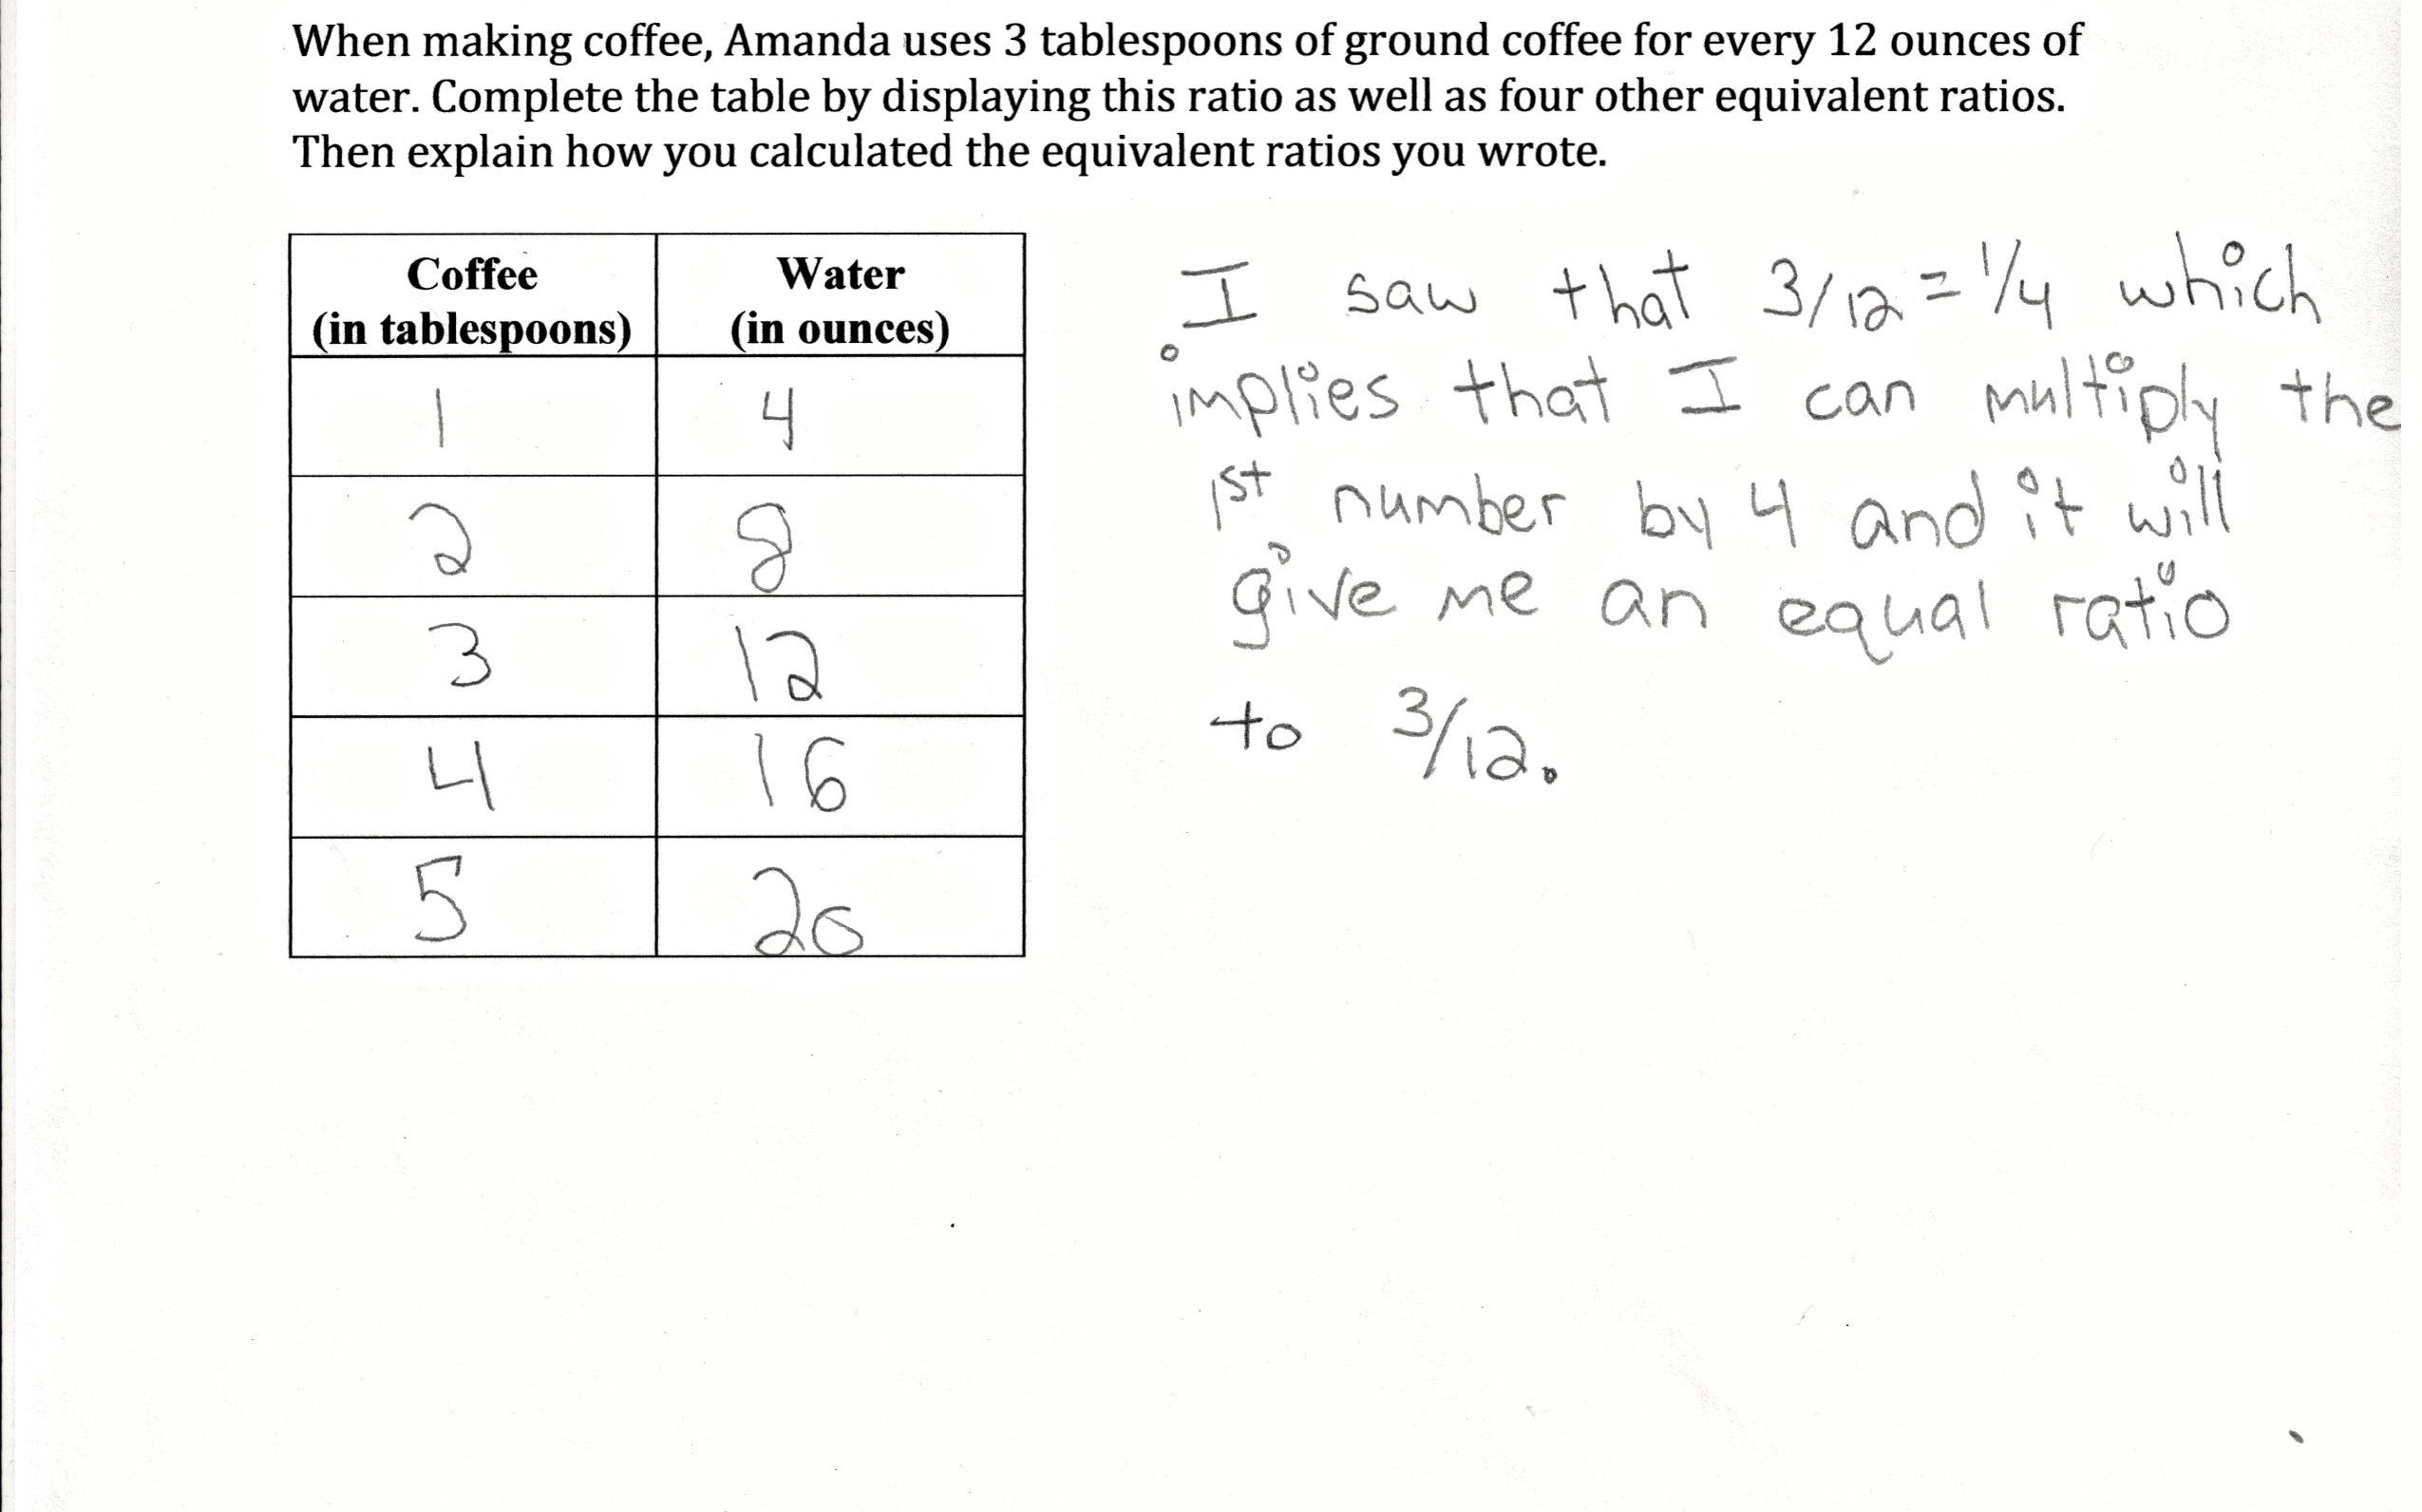 When making coffee, Amanda uses 3 tablespoons of ground coffee for every 12 ounces of
water. Complete the table by displaying this ratio as well as four other equivalent ratios.
Then explain how you calculated the equivalent ratios you wrote.
Coffee
(in tablespoons)
Water
(in ounces)
1 4
2 8
3 12
4 16
5 20
I saw that 3/12 = 1/4 which
implies that I can multiply the
1st number by 4 and it will
give me an equal ratio
to 3/12.